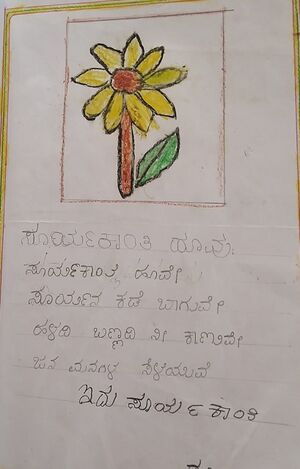 ಸೂರ್ಯಕಾಂತಿ ಹೂವು
ಸೂರ್ಯಕಾಂತಿ ಹೂವೇ
ಸೂರ್ಯನ ಕಡೆ ಬಾಗುವೇ
ಹಳದಿ ಬಣ್ಣದಿ ನೀ ಕಾಣುವೇ
ಜನ ಮನಗಳ ಸೆಳೆಯುವೆ
ಇದು ಸೂರ್ಯಕಾಂತಿ